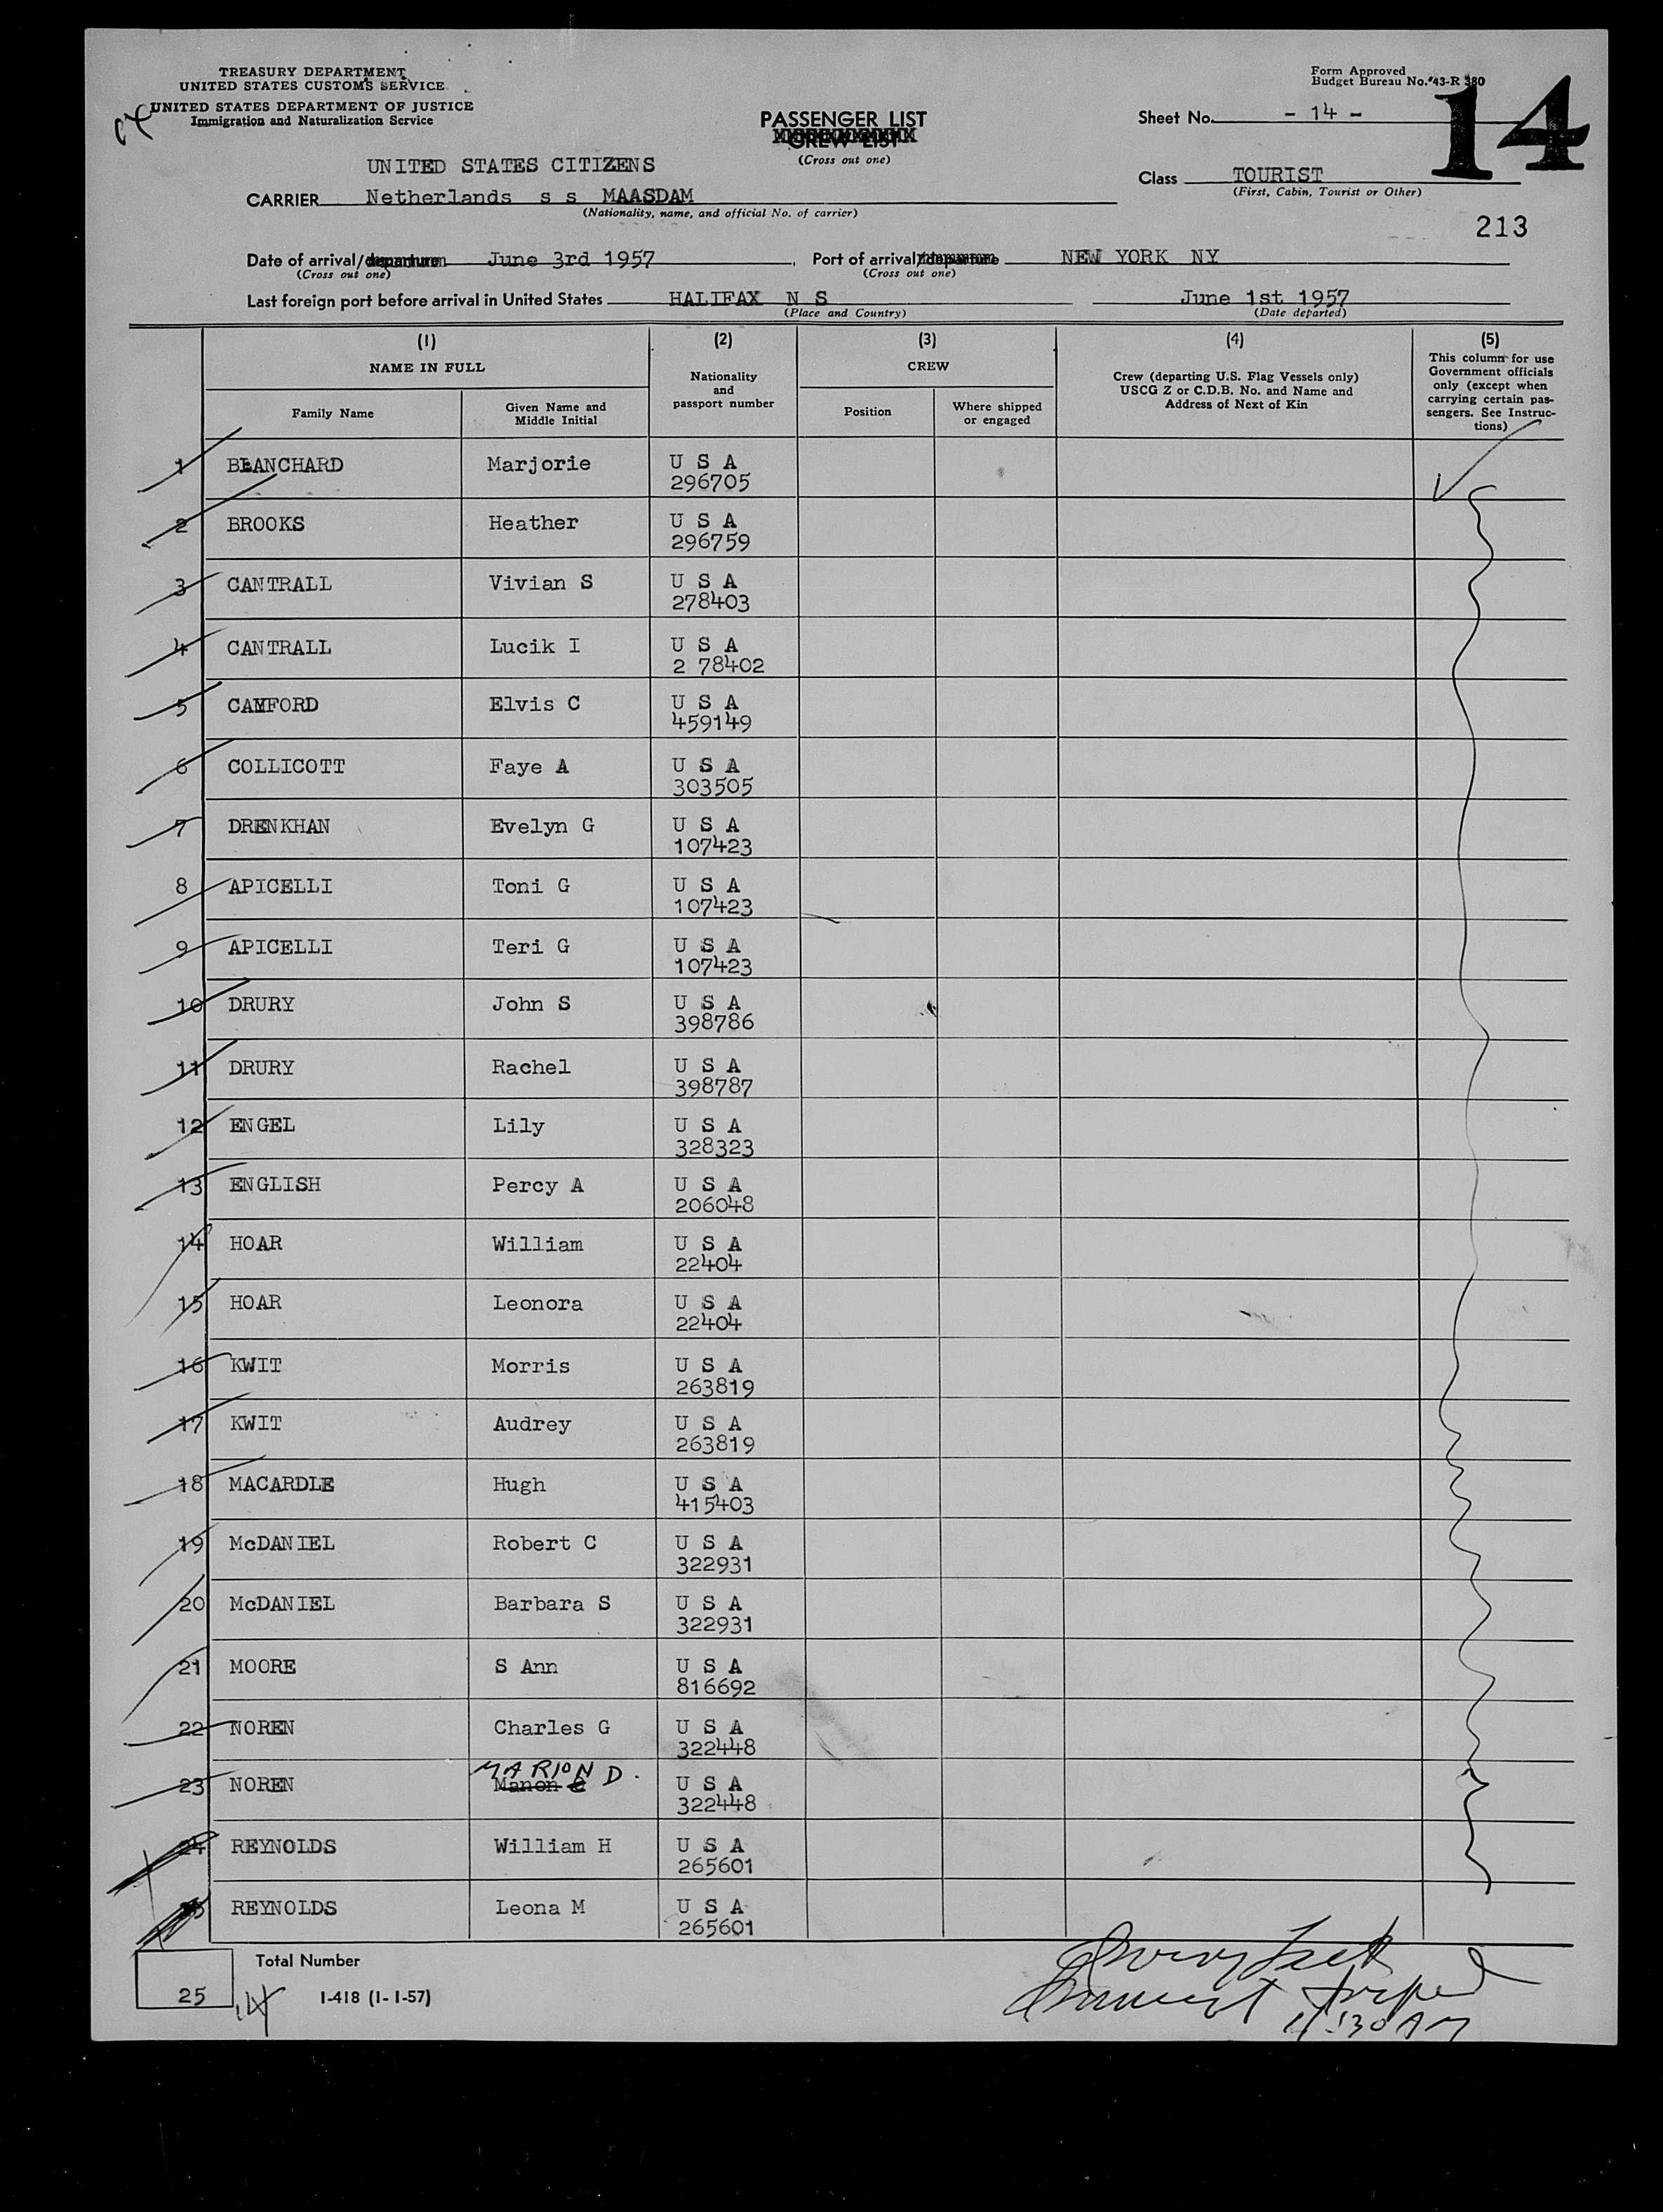 TREASURY DEPARTMENT
UNITED STATES CUSTOMS SERVICE
UNITED STATES DEPARTMENT OF JUSTICE
Immigration and Naturalization Service
PASSENGER LIST
CREW LIST
(Cross out one)
Form Approved
Budget Bureau No. 43-R 380
Sheet No. - 14 -
14
UNITED STATES CITIZENS
CARRIER Netherlands s s MAASDAM
(Nationality, name, and official No. of carrier)
Class TOURIST
(First, Cabin, Tourist or Other)
213
Date of arrival/departure June 3rd 1957, Port of arrival/departure NEW YORK NY
(Cross out one) (Cross out one)
Last foreign port before arrival in United States HALIFAX N S June 1st 1957
(Place and Country) (Date departed)
(1) (2) (3) (4) (5)
NAME IN FULL
Family Name
Given Name and
Middle Initial
Nationality
and
passport number
CREW
Position
Where shipped
or engaged
Crew (departing U.S. Flag Vessels only)
USCG Z or C.D.B. No. and Name and
Address of Next of Kin
This column for use
Government officials
only (except when
carrying certain pas-
sengers. See Instruc-
tions)
1 BLANCHARD Marjorie U S A
296705
2 BROOKS Heather U S A
296759
3 CANTRALL Vivian S U S A
278403
4 CANTRALL Lucik I U S A
2 78402
5 Elvis C U S A
459149
6 COLLICOTT Faye A U S A
303505
7 DRENKHAN Evelyn G U S A
107423
8 APICELLI Toni G U S A
107423
9 APICELLI Teri G U S A
107423
10 DRURY John S U S A
398786
11 DRURY Rachel U S A
398787
12 ENGEL Lily U S A
328323
13 ENGLISH Percy A U S A
206048
14 HOAR William U S A
22404
15 HOAR Leonora U S A
22404
16 KWIT Morris U S A
263819
17 KWIT Audrey U S A
263819
18 MACARDLE Hugh U S A
415403
19 McDANIEL Robert C U S A
322931
20 McDANIEL Barbara S U S A
322931
21 MOORE S Ann U S A
816692
22 NOREN Charles G U S A
322448
MARION D.
23 NOREN Manon U S A
322448
24 REYNOLDS William H U S A
265601
25 REYNOLDS Leona M U S A
265601
Total Number
25
14
I-418 (1-1-57)
11:30 AM